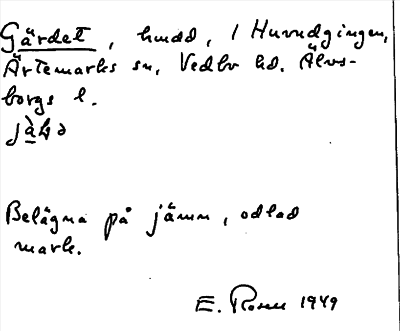 Gärdet, hmdd, 1 Huvudgingen,
Ärtemarks sn, Vedbo hd. Älvs-
borgs l.
Belägna på jämn, odlad
mark.
E. 1949